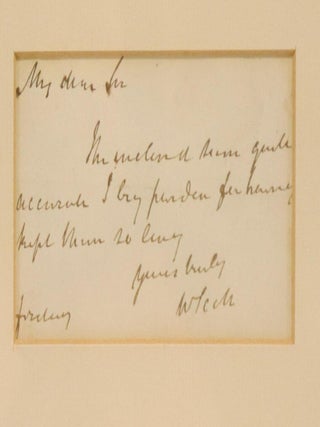 My dear Sir
The inclosed seem quite
accurate I beg pardon for having
kept them so long
yours truly
W Scott
friday